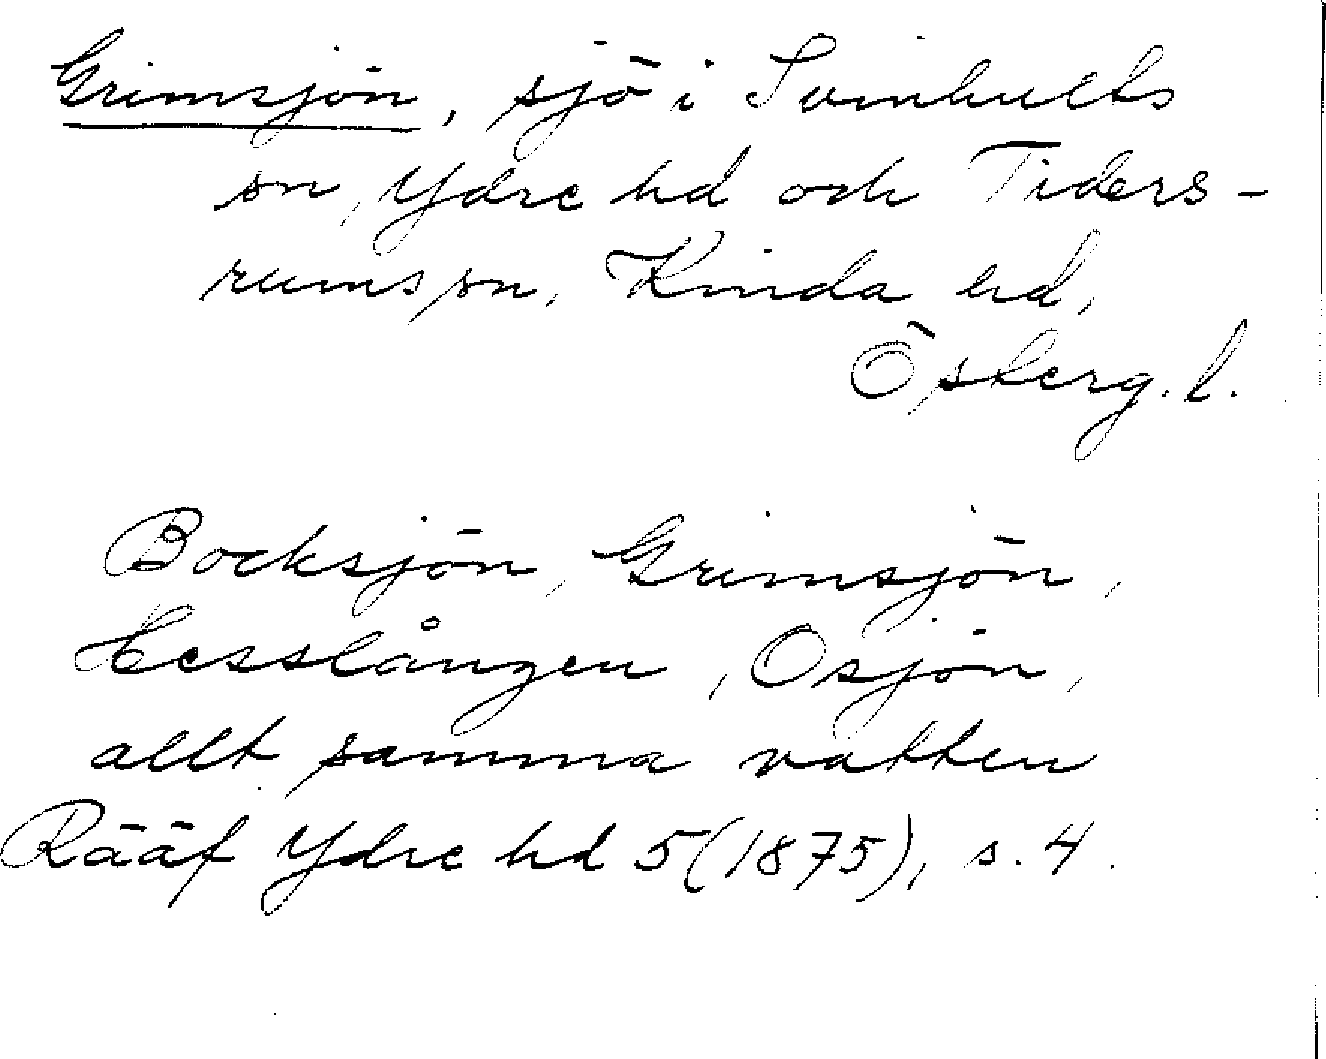 Grimsjön, sjö i Svinhults
sn, Ydre hd och Tiders-
rums sn, Kinda hd,
Österg. l.
Bocksjön, Grimsjön,
Hesslången, Osjön,
allt samma vatten
Rääf Ydre hd 5 (1875), s. 4.